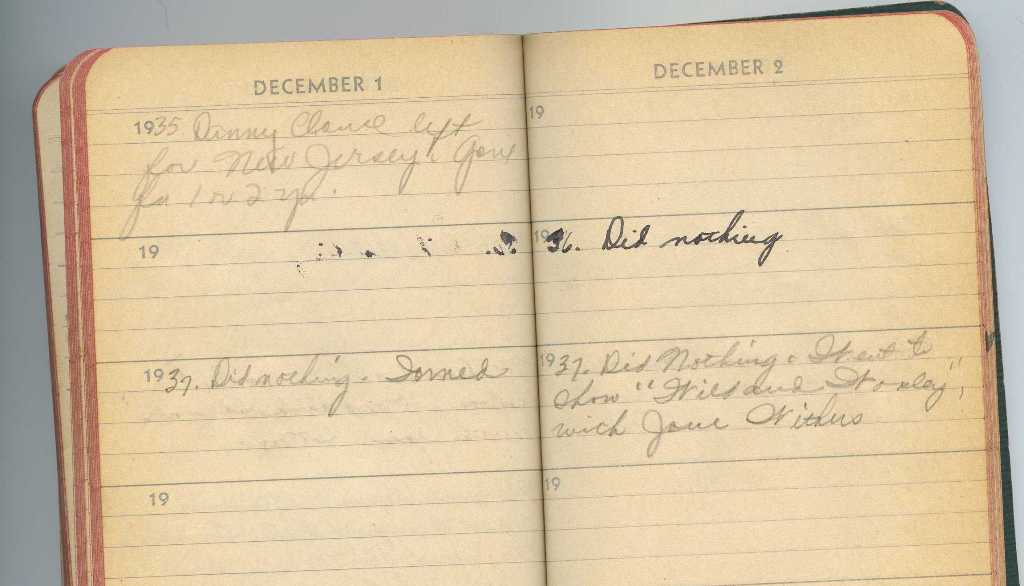 DECEMBER 1
1935 Dinny Clance left
for New Jersey. Gone
for 1 or 2 yr.
19
1937. Did nothing.
19
DECEMBER 2
19
1936. Did nothing
1937. Did Nothing. Went to
show "Wild and Wooley",
with Jane Withers
19